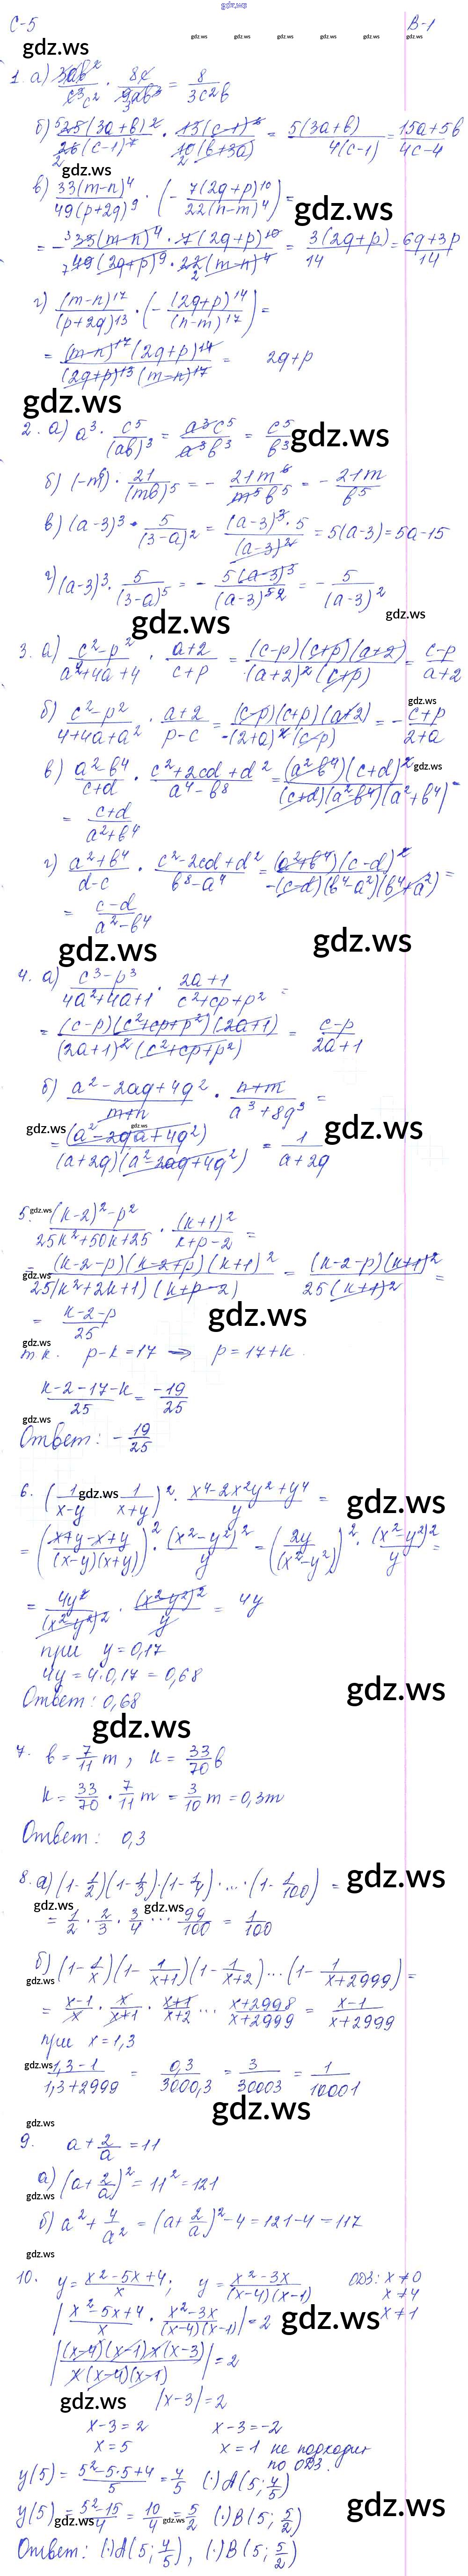 gdz.ws
С-5 В-1
gdz.ws
gdz.ws gdz.ws gdz.ws gdz.ws gdz.ws gdz.ws
1. а) 3ab²/c³ · 8c/9ab³ = 8/3c²b
б) 25(3a+b)²/26(c-1)² · 13(c-1)/10(b+3a) = 5(3a+b)/4(c-1) = 15a+5b/4c-4
gdz.ws
в) 33(m-n)⁴/49(p+2q)⁹ · (- 7(2q+p)¹⁰/22(n-m)⁴) =
gdz.ws
= - 33(m-n)⁴ · 7(2q+p)¹⁰/49(2q+p)⁹ · 22(m-n)⁴ = 3(2q+p)/14 = 6q+3p/14
г) (m-n)¹⁷/(p+2q)¹³ · (- (2q+p)¹⁴/(n-m)¹⁷) =
= (m-n)¹⁷(2q+p)¹⁴/(2q+p)¹³(m-n)¹⁷ = 2q+p
gdz.ws
2. а) a³ · c⁵/(ab)³ = a³c⁵/a³b³ = c⁵/b³
gdz.ws
б) (-m⁶) · 21/(mb)⁵ = - 21m⁶/m⁵b⁵ = - 21m/b⁵
в) (a-3)³ · 5/(3-a)² = (a-3)³ · 5/(a-3)² = 5(a-3) = 5a-15
г) (a-3)³ · 5/(3-a)⁵ = - 5(a-3)³/(a-3)⁵ = - 5/(a-3)²
gdz.ws
gdz.ws
3. а) c²-p²/a²+4a+4 · a+2/c+p = (c-p)(c+p)(a+2)/(a+2)²(c+p) = c-p/a+2
gdz.ws
б) c²-p²/4+4a+a² · a+2/p-c = (c-p)(c+p)(a+2)/-(2+a)²(c-p) = - c+p/2+a
gdz.ws
в) a²-b⁴/c+d · c²+2cd+d²/a⁴-b⁸ = (a²-b⁴)(c+d)²/(c+d)(a²-b⁴)(a²+b⁴) =
= c+d/a²+b⁴
г) a²+b⁴/d-c · c²-2cd+d²/b⁸-a⁴ = (a²+b⁴)(c-d)²/-(c-d)(b⁴-a²)(b⁴+a²) =
= c-d/a²-b⁴
gdz.ws gdz.ws
4. а) c³-p³/4a²+4a+1 · 2a+1/c²+cp+p² =
= (c-p)(c²+cp+p²)(2a+1)/(2a+1)²(c²+cp+p²) = c-p/2a+1
б) a²-2aq+4q²/m+n · n+m/a³+8q³ =
gdz.ws gdz.ws
= (a²-2qa+4q²)/(a+2q)(a²-2aq+4q²) = 1/a+2q
gdz.ws
5. (k-2)²-p²/25k²+50k+25 · (k+1)²/k+p-2 =
gdz.ws
= (k-2-p)(k-2+p)(k+1)²/25(k²+2k+1)(k+p-2) = (k-2-p)(k+1)²/25(k+1)² =
gdz.ws
= k-2-p/25
gdz.ws
т.к. p-k=17 ⟹ p=17+k.
k-2-17-k/25 = -19/25
gdz.ws
Ответ: - 19/25
6. (1/x-y - 1/x+y)² · x⁴-2x²y²+y⁴/y =
gdz.ws gdz.ws
= (x+y-x+y/(x-y)(x+y))² · (x²-y²)²/y = (2y/(x²-y²))² · (x²-y²)²/y =
= 4y²/(x²-y²)² · (x²-y²)²/y = 4y
при y=0,17
4y = 4·0,17 = 0,68
gdz.ws
Ответ: 0,68
gdz.ws
7. b = 7/11 m, k = 33/70 b
k = 33/70 · 7/11 m = 3/10 m = 0,3m
Ответ: 0,3
gdz.ws
8. а) (1-1/2)(1-1/3)·(1-1/4)·...·(1-1/100) =
gdz.ws gdz.ws
= 1/2 · 2/3 · 3/4 ... 99/100 = 1/100
б) (1-1/x)(1-1/x+1)(1-1/x+2)...(1-1/x+2999) =
gdz.ws
= x-1/x · x/x+1 · x+1/x+2 ... x+2998/x+2999 = x-1/x+2999
при x=1,3
gdz.ws
1,3-1/1,3+2999 = 0,3/3000,3 = 3/30003 = 1/10001
gdz.ws
gdz.ws
9. a+2/a = 11
gdz.ws
а) (a+2/a)² = 11² = 121
б) a²+4/a² = (a+2/a)²-4 = 121-4 = 117
gdz.ws
10. y = x²-5x+4/x; y = x²-3x/(x-4)(x-1) ОДЗ: x≠0
x≠4
x≠1
|x²-5x+4/x · x²-3x/(x-4)(x-1)| = 2
gdz.ws
|(x-4)(x-1)x(x-3)/x(x-4)(x-1)| = 2
gdz.ws
|x-3| = 2
x-3=2 x-3=-2
x=5 x=1 не подходит
по ОДЗ.
y(5) = 5²-5·5+4/5 = 4/5 (·)A(5; 4/5)
gdz.ws
y(5) = 5²-15/4 = 10/4 = 5/2 (·)B(5; 5/2)
gdz.ws gdz.ws
Ответ: (·)A(5; 4/5), (·)B(5; 5/2)